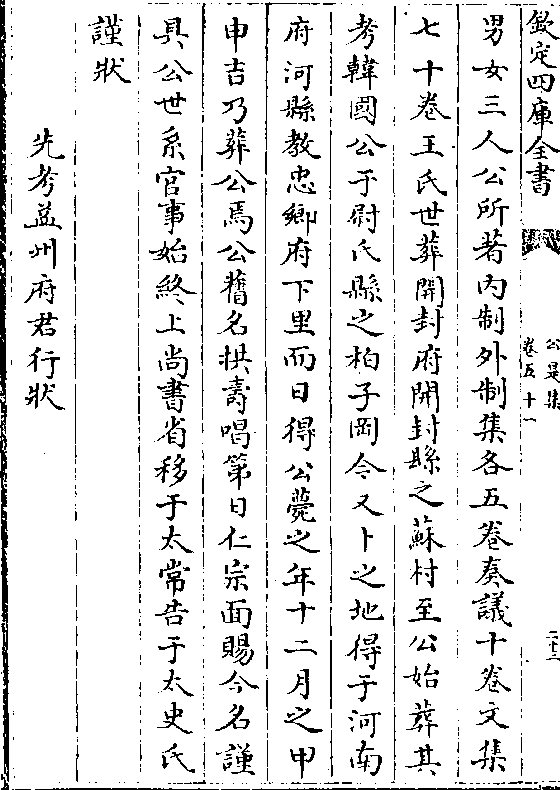 欽定四庫全書
公是集
卷五十一
二十三
男女三人公所著内制外制集各五卷奏議十卷文集
七十卷王氏世葬開封府開封縣之蘇村至公始葬其
考韓國公于尉氏縣之柏子岡今又卜之地得于河南
府河縣教忠鄉府下里而日得公薨之年十二月之甲
申吉乃葬公焉公舊名拱壽唱第日仁宗面賜今名謹
具公世系官事始終上尚書省移于太常告于太史氏
謹狀
先考益州府君行狀